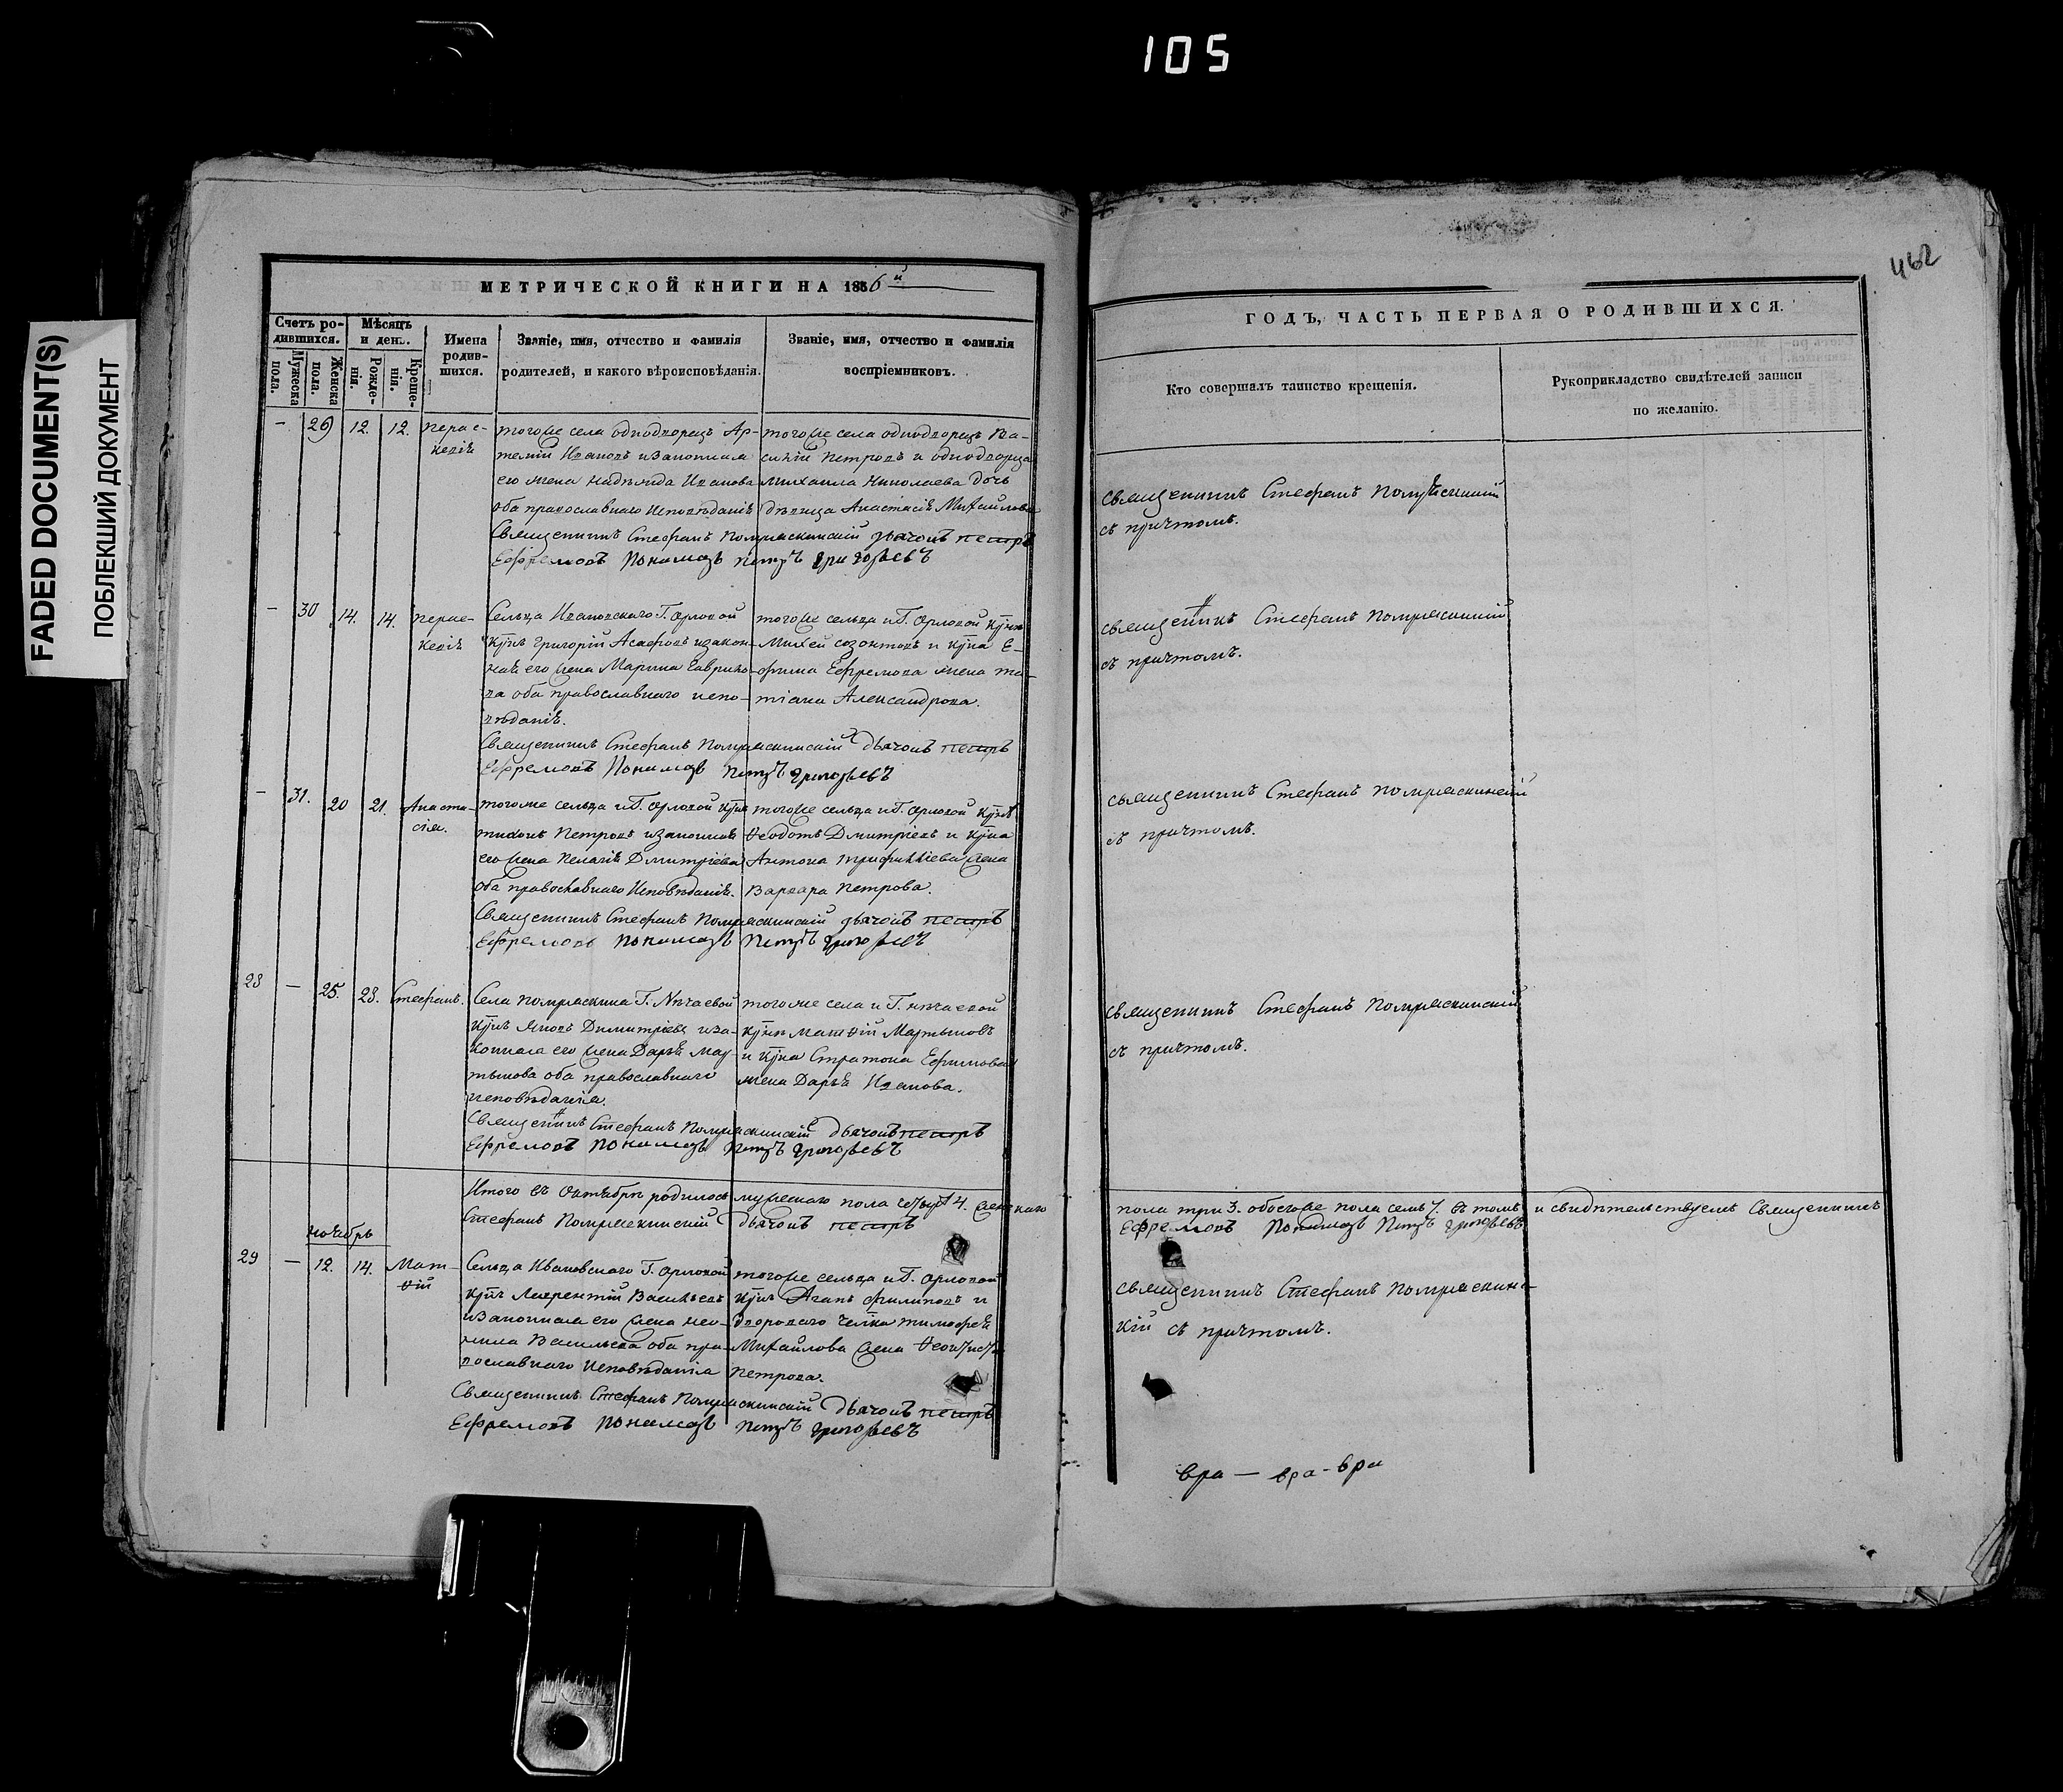 105
FADED DOCUMENT(S)
ПОБЛЕКШИЙ ДОКУМЕНТ
462
МЕТРИЧЕСКОЙ КНИГИ НА 1856й
Счетъ ро-
дившихся.
Мужеска
пола.
Женска
пола.
Мѣсяцъ
и день.
Рожде-
нія.
Креще-
нія.
Имена
родив-
шихся.
Званіе, имя, отчество и фамилія
родителей, и какого вѣроисповѣданія.
Званіе, имя, отчество и фамилія
воспріемниковъ.
– 29 12. 12.
Парас-
тогоже села однодворецъ Ар-
темій Ивановъ изаконная
его жена Надежда Иванова
оба православнаго исповѣданія
тогоже села однодворецъ Ва-
силій Петровъ и однодворца
Михаила Николаева дочь
дѣвица Анастасія Михайлова
Священникъ Стефанъ дьячокъ Петръ
Ефремовъ Пономарь Петръ Григорьевъ
– 30 14. 14.
Сельца Ивановскаго Г. Орловой
Григорій Асафовъ изакон-
ная его жена Марина Гаврило-
ва оба православнаго испо-
вѣданія.
тогоже сельца и Г. Орловой
Михей Созонтовъ и Е-
фима Ефремова жена Та-
тіана Александрова.
Священникъ Стефанъ дьячокъ Петръ
Ефремовъ Пономарь Петръ Григорьевъ
– 31. 20 21.
Анаста-
сія.
тогоже сельца и Г. Орловой
Тихонъ Петровъ изаконная
его жена Пелагія Дмитріева
оба православнаго исповѣданія.
тогоже сельца и Г. Орловой
Ѳеодотъ Дмитріевъ и
Антона жена
Варвара Петрова.
Священникъ Стефанъ дьячокъ Петръ
Ефремовъ Пономарь Петръ Григорьевъ
28 – 25. 28. Стефанъ.
Села Г. Нѣчаевой
Яковъ Димитріевъ иза-
конная его жена Дарья Мар-
тынова оба православнаго
исповѣданія.
тогоже села и Г. Нѣчаевой
Матѳій Мартыновъ
и Стратона Ефимова
жена Дарья Иванова.
Священникъ Стефанъ дьячокъ Петръ
Ефремовъ Пономарь Петръ Григорьевъ
Итого въ Октябрѣ родилось мужескаго пола четыре 4. женскаго
Стефанъ дьячокъ Петръ
Ноябрь
29 – 12. 14.
Мат-
ѳій
Сельца Ивановскаго Г. Орловой
Лаврентій Васильевъ
изаконная его жена Нео-
нила Васильева оба пра-
вославнаго исповѣданія
тогоже сельца и Г. Орловой
Агапъ Филиповъ и
двороваго Тимофея
Михайлова жена
Петрова.
Священникъ Стефанъ дьячокъ Петръ
Ефремовъ Пономарь Петръ Григорьевъ
ГОДЪ, ЧАСТЬ ПЕРВАЯ О РОДИВШИХСЯ.
Кто совершалъ таинство крещенія.
Рукоприкладство свидѣтелей записи
по желанію.
Священникъ Стефанъ
съ причтомъ.
Священникъ Стефанъ
съ причтомъ.
Священникъ Стефанъ
съ причтомъ.
Священникъ Стефанъ
съ причтомъ.
пола три 3. обоегоже пола семь 7. въ томъ и свидѣтельствуемъ Священникъ
Ефремовъ Пономарь Петръ Григорьевъ
Священникъ Стефанъ
кій съ причтомъ.
вра — вра - вра